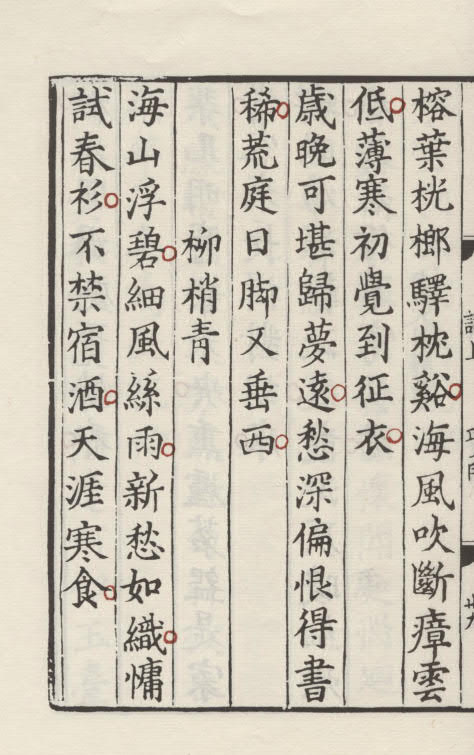 榕葉桄榔驛枕谿海風吹斷瘴雲
低薄寒初覺到征衣
歲晚可堪歸夢遠愁深偏恨得書
稀荒庭日脚又垂西
柳梢青
海山浮碧細風絲雨新愁如織慵
試春衫不禁宿酒天涯寒食